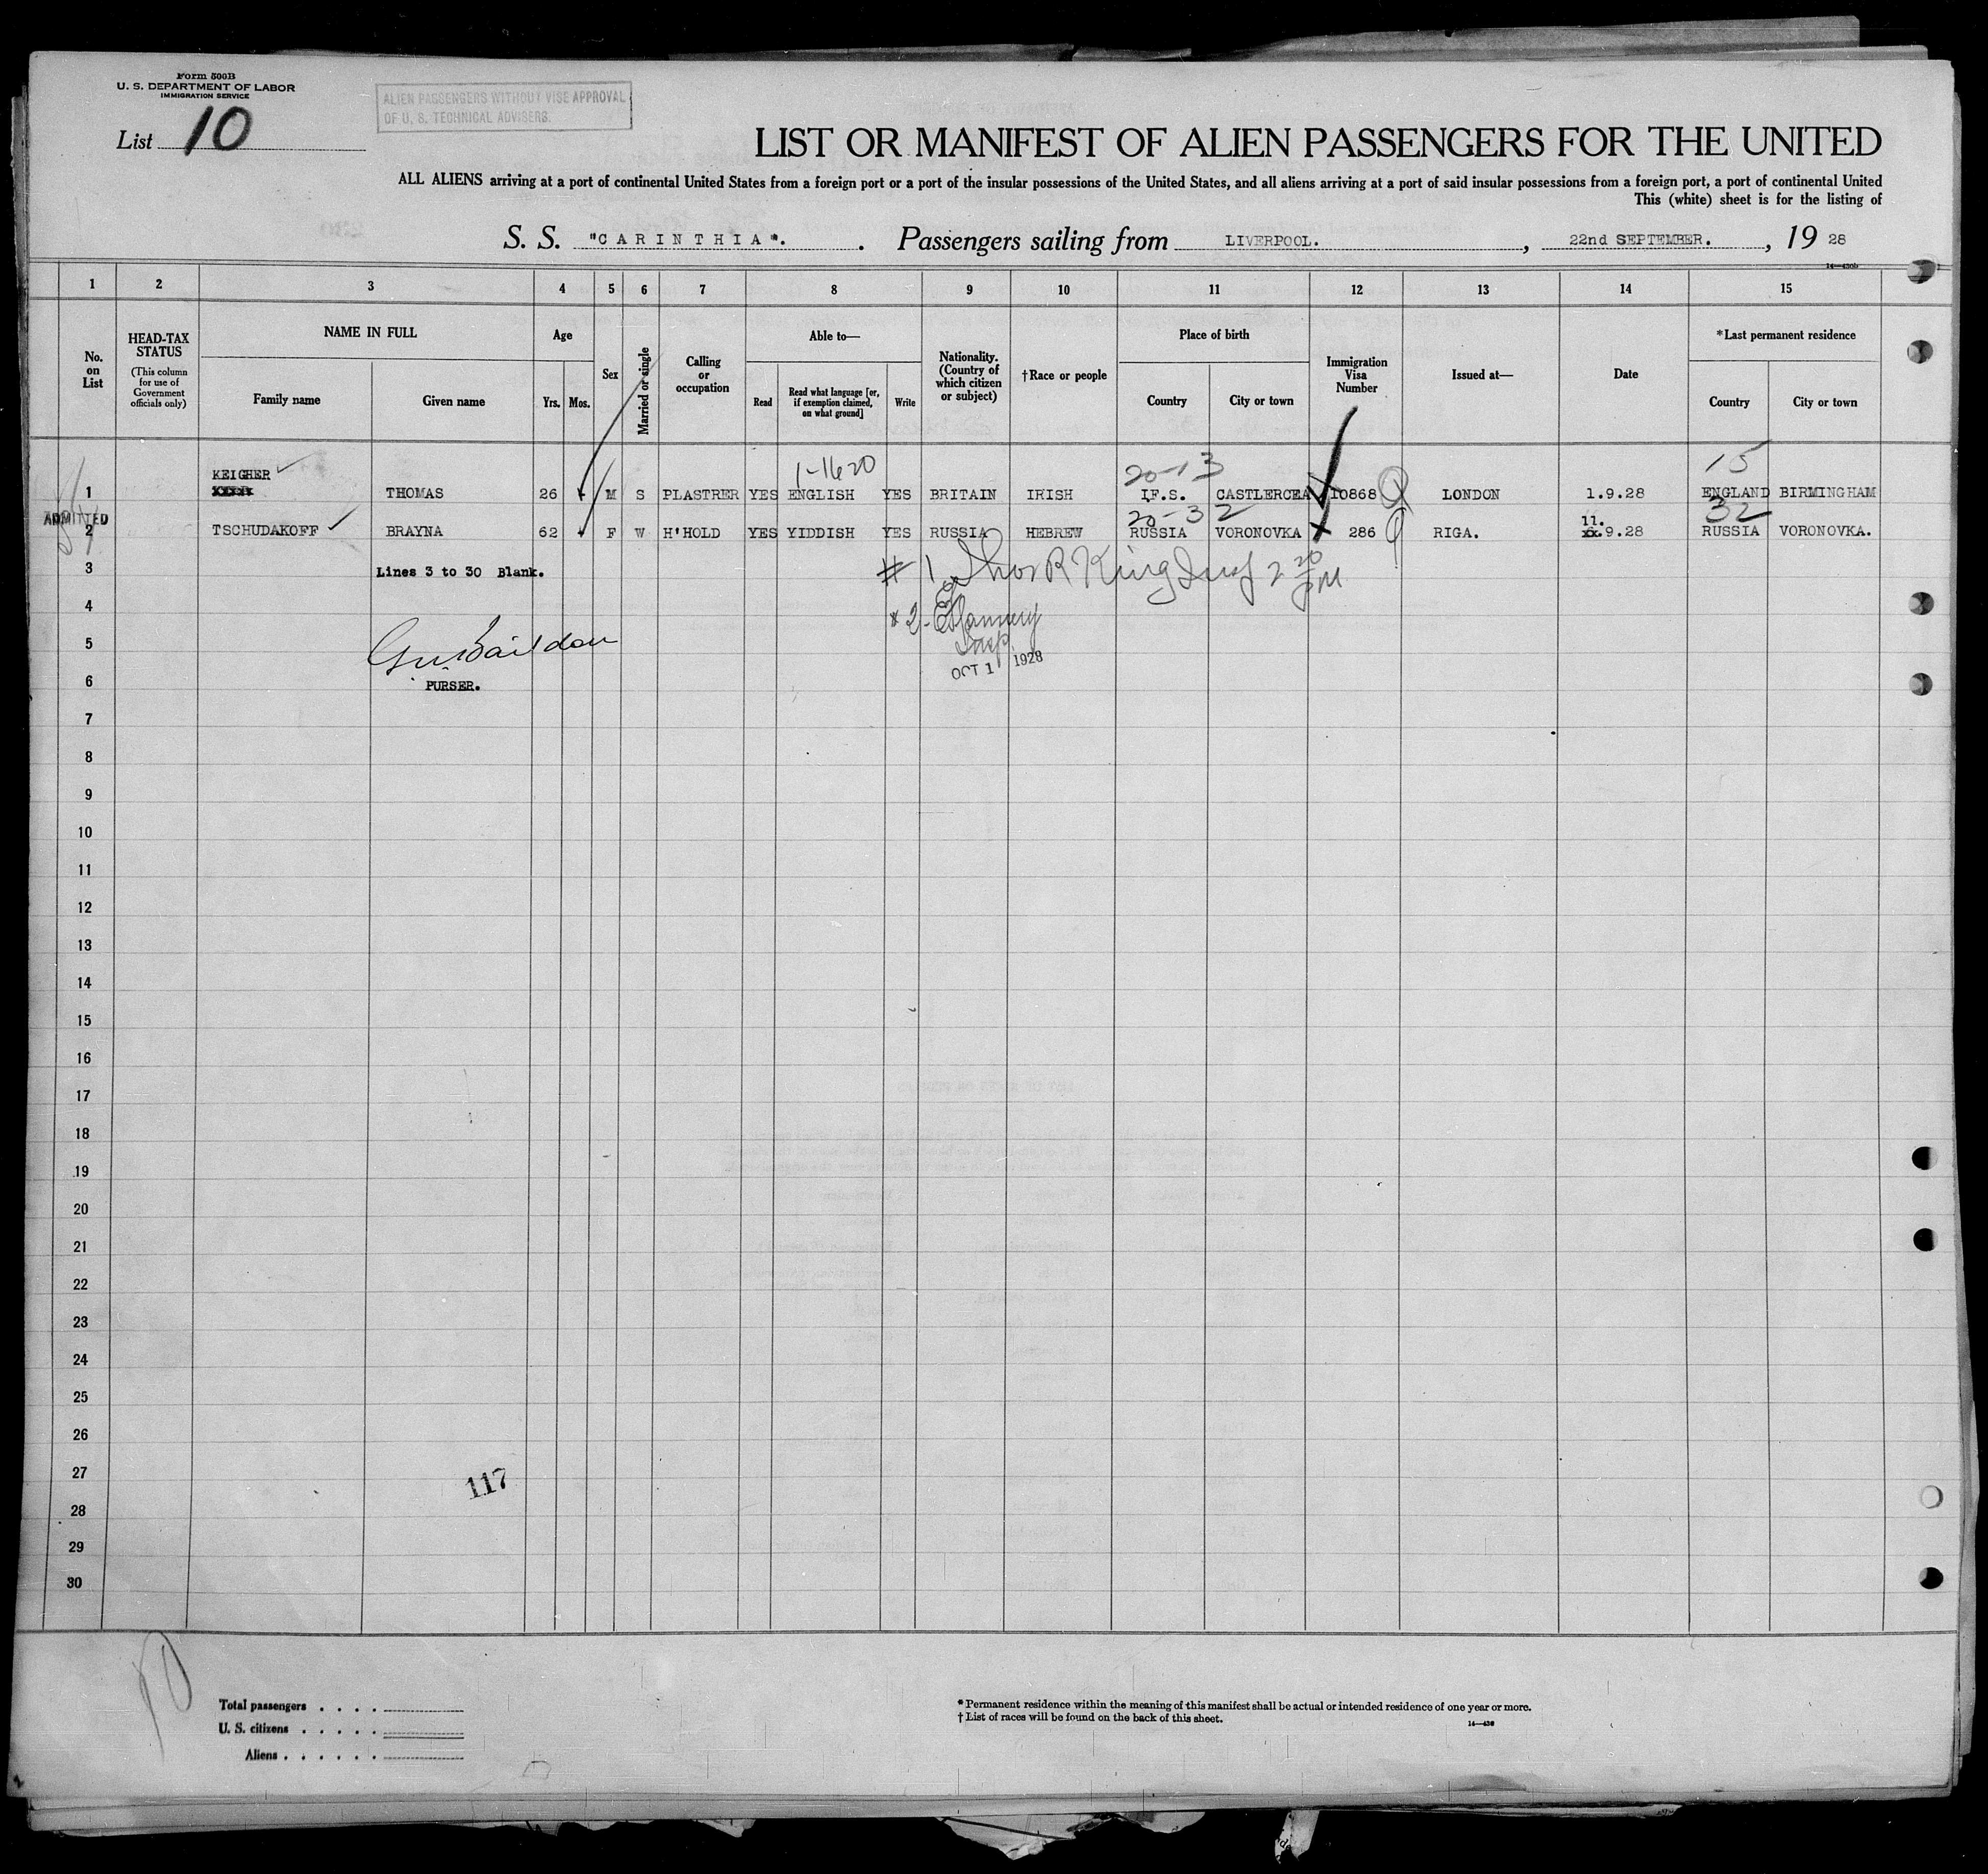 Form 500B
U. S. DEPARTMENT OF LABOR
IMMIGRATION SERVICE
List 10
ALIEN PASSENGERS WITHOUT VISE APPROVAL
OF U. S. TECHNICAL ADVISERS.
LIST OR MANIFEST OF ALIEN PASSENGERS FOR THE UNITED
ALL ALIENS arriving at a port of continental United States from a foreign port or a port of the insular possessions of the United States, and all aliens arriving at a port of said insular possessions from a foreign port, a port of continental United
This (white) sheet is for the listing of
S. S. "CARINTHIA". . Passengers sailing from LIVERPOOL. , 22nd SEPTEMBER. , 19 28
1 2 3 4 5 6 7 8 9 10 11 12 13 14 15
No. on List
HEAD-TAX STATUS
(This column for use of Government officials only)
NAME IN FULL
Family name Given name
Age
Yrs. Mos.
Sex
Married or single
Calling or occupation
Able to—
Read
Read what language [or, if exemption claimed, on what ground]
Write
Nationality. (Country of which citizen or subject)
†Race or people
Place of birth
Country City or town
Immigration Visa Number
Issued at—
Date
*Last permanent residence
Country City or town
1-1620 20-13 15
KEIGHER
1 THOMAS 26 M S PLASTRER YES ENGLISH YES BRITAIN IRISH I.F.S. CASTLERCEA 10868 LONDON 1.9.28 ENGLAND BIRMINGHAM
ADMITTED
20-3 2 32
11.
2 TSCHUDAKOFF BRAYNA 62 F W H'HOLD YES YIDDISH YES RUSSIA HEBREW RUSSIA VORONOVKA 286 RIGA. .9.28 RUSSIA VORONOVKA.
3 Lines 3 to 30 Blank.
# 1 Thos R King Insp 2 20 PM
4
# 2 Insp
5
OCT 1 1928
6 PURSER.
7
8
9
10
11
12
13
14
15
16
17
18
19
20
21
22
23
24
25
26
27
117
28
29
30
10
Total passengers . . . .
U. S. citizens . . . . .
Aliens . . . . . .
* Permanent residence within the meaning of this manifest shall be actual or intended residence of one year or more.
† List of races will be found on the back of this sheet.
14—430